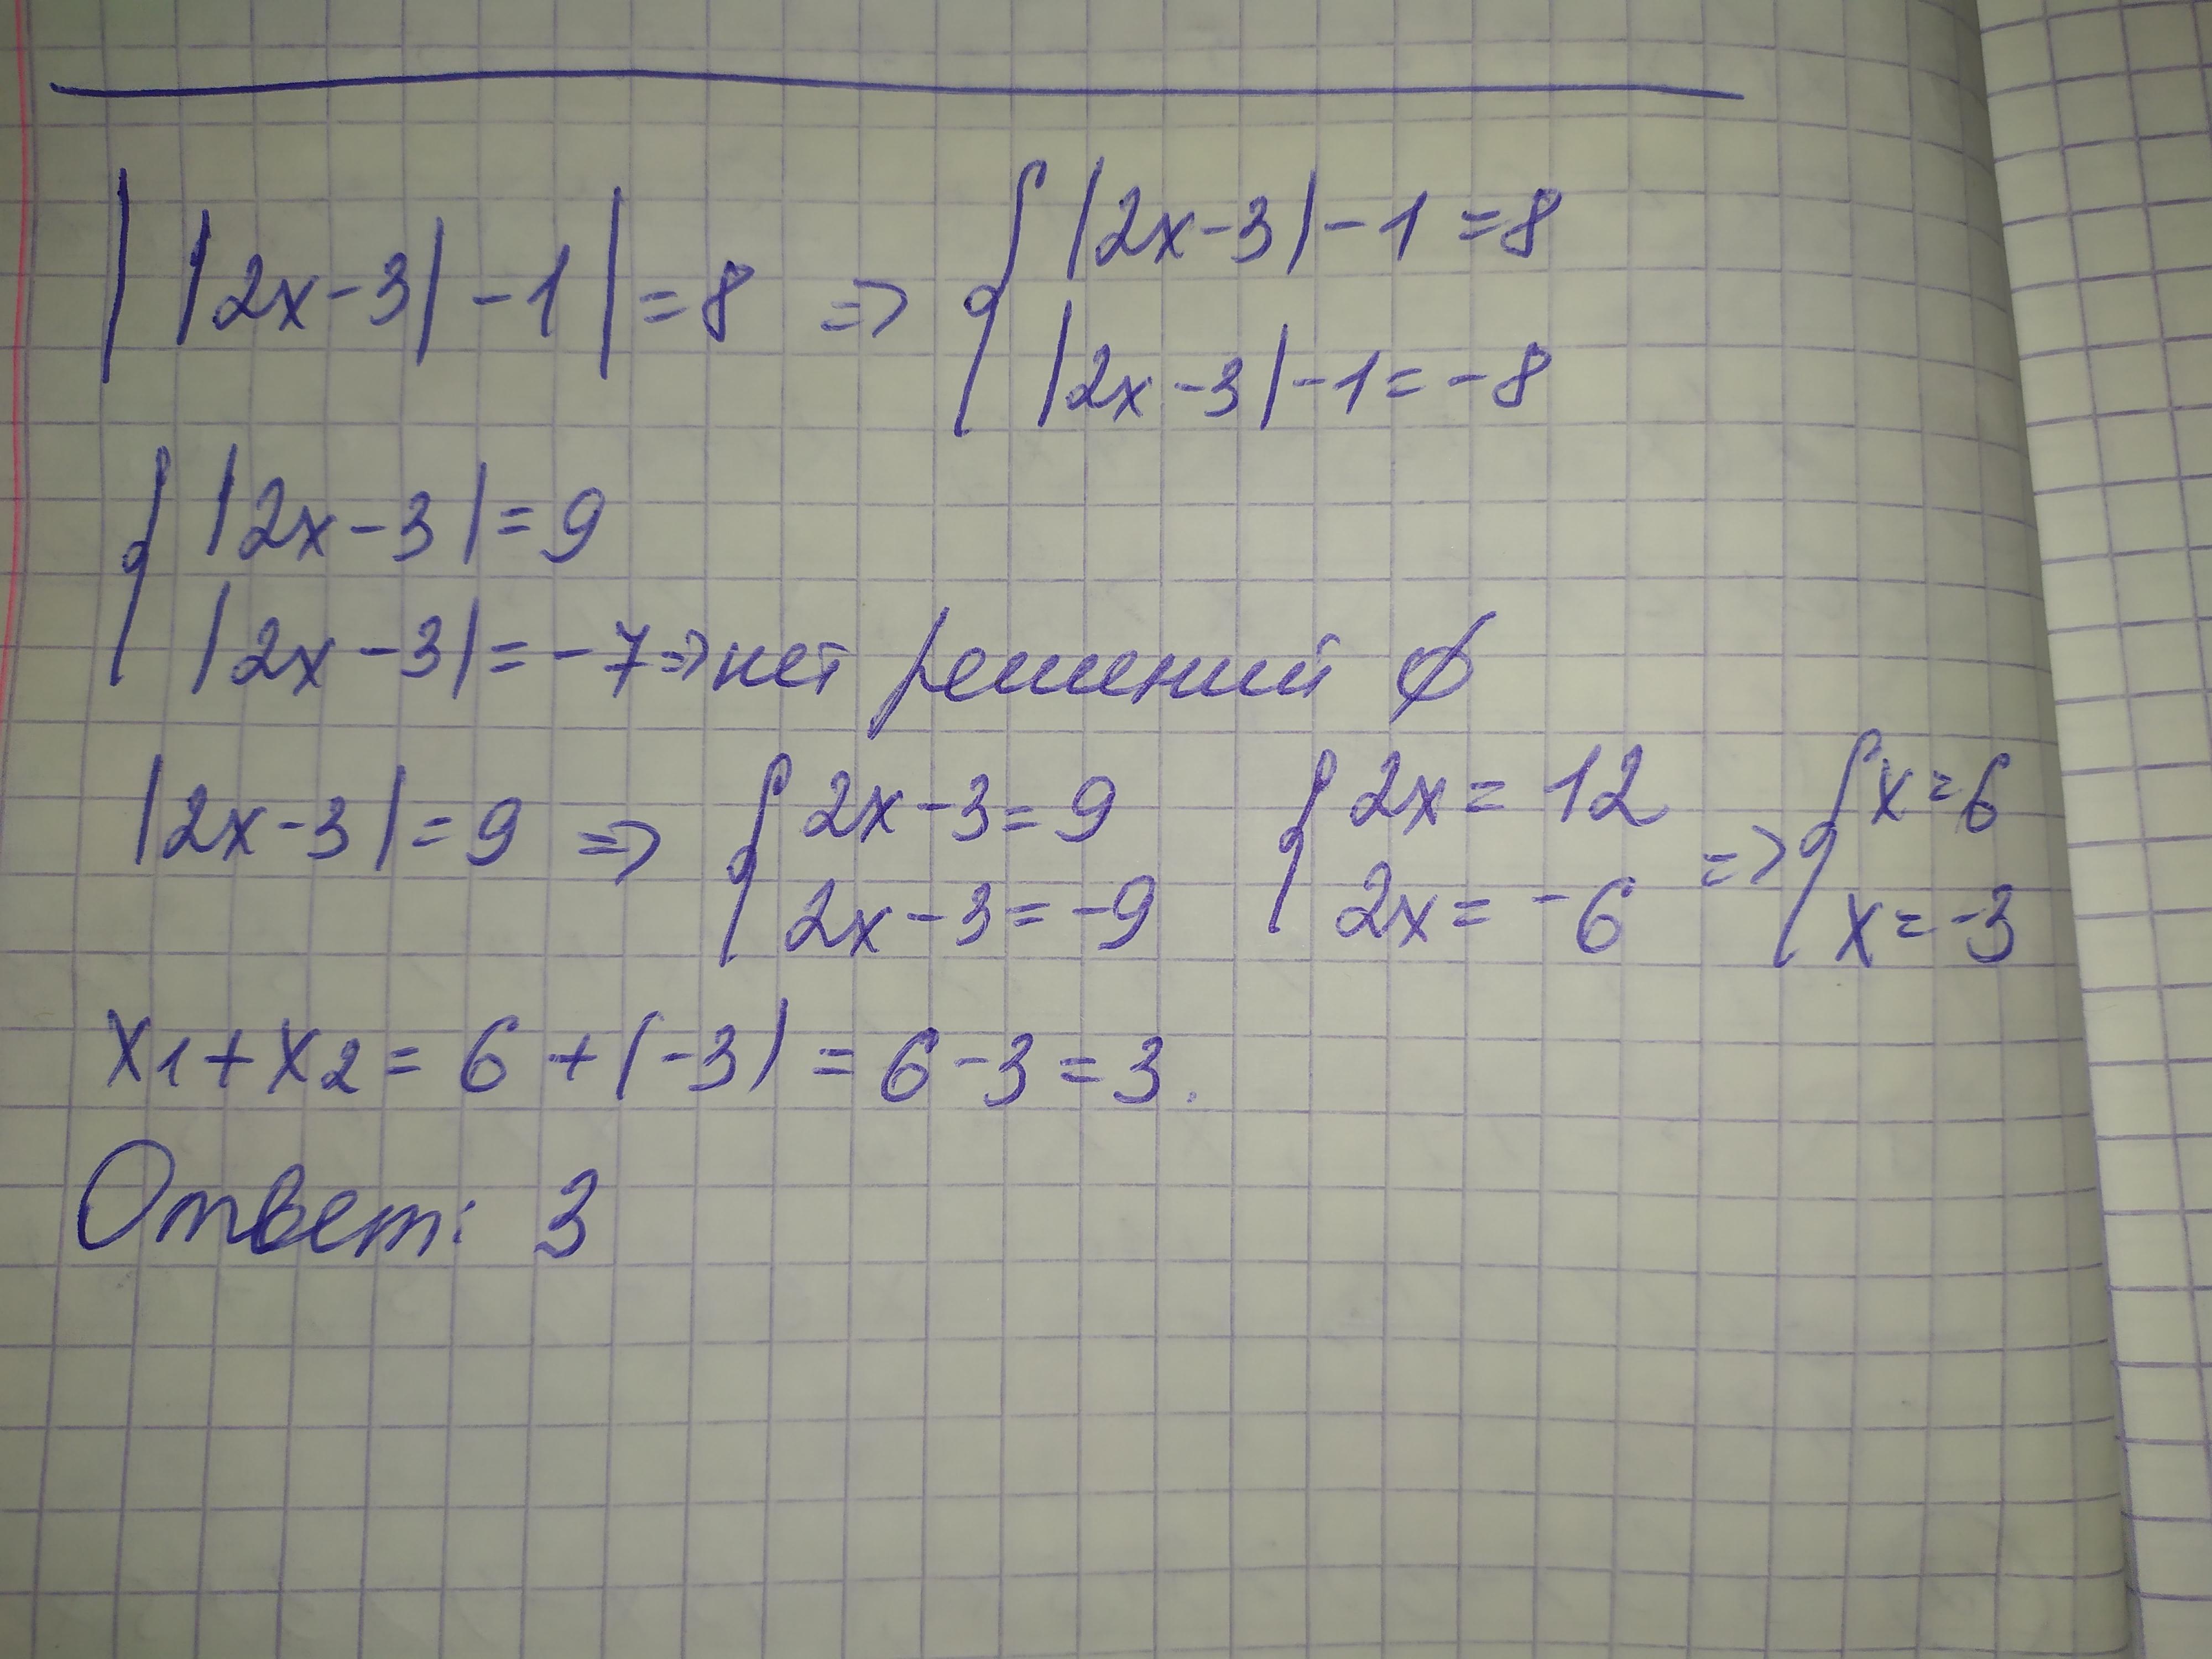 ||2x-3|-1|=8 => { |2x-3|-1=8
|2x-3|-1=-8
{ |2x-3|=9
|2x-3|=-7=>нет решений ∅
|2x-3|=9 => { 2x-3=9 { 2x=12 => { x=6
2x-3=-9 2x=-6 x=-3
x1+x2=6+(-3)=6-3=3.
Ответ: 3